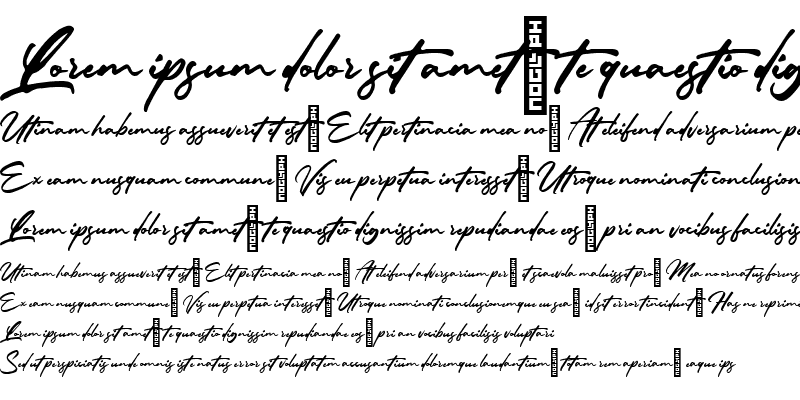 Lorem ipsum dolor sit amet te quaestio dig
Utinam habemus assueverit et est Elit pertinacia mea no At eleifend adversarium pe
Ex eam nusquam commune Vis eu perpetua interesset Utroque nominati conclusion
Lorem ipsum dolor sit amet te quaestio dignissim repudiandae eos pri an vocibus facilisis
Utinam habemus assueverit et est Elit pertinacia mea no At eleifend adversarium per et scaevola maluisset pro Mea no ornatus forens
Ex eam nusquam commune Vis eu perpetua interesset Utroque nominati conclusionemque eu sea id sit error tincidunt Has ne reprime
Lorem ipsum dolor sit amet te quaestio dignissim repudiandae eos pri an vocibus facilisis voluptari
Sed ut perspiciatis unde omnis iste natus error sit voluptatem accusantium doloremque laudantium totam rem aperiam eaque ips